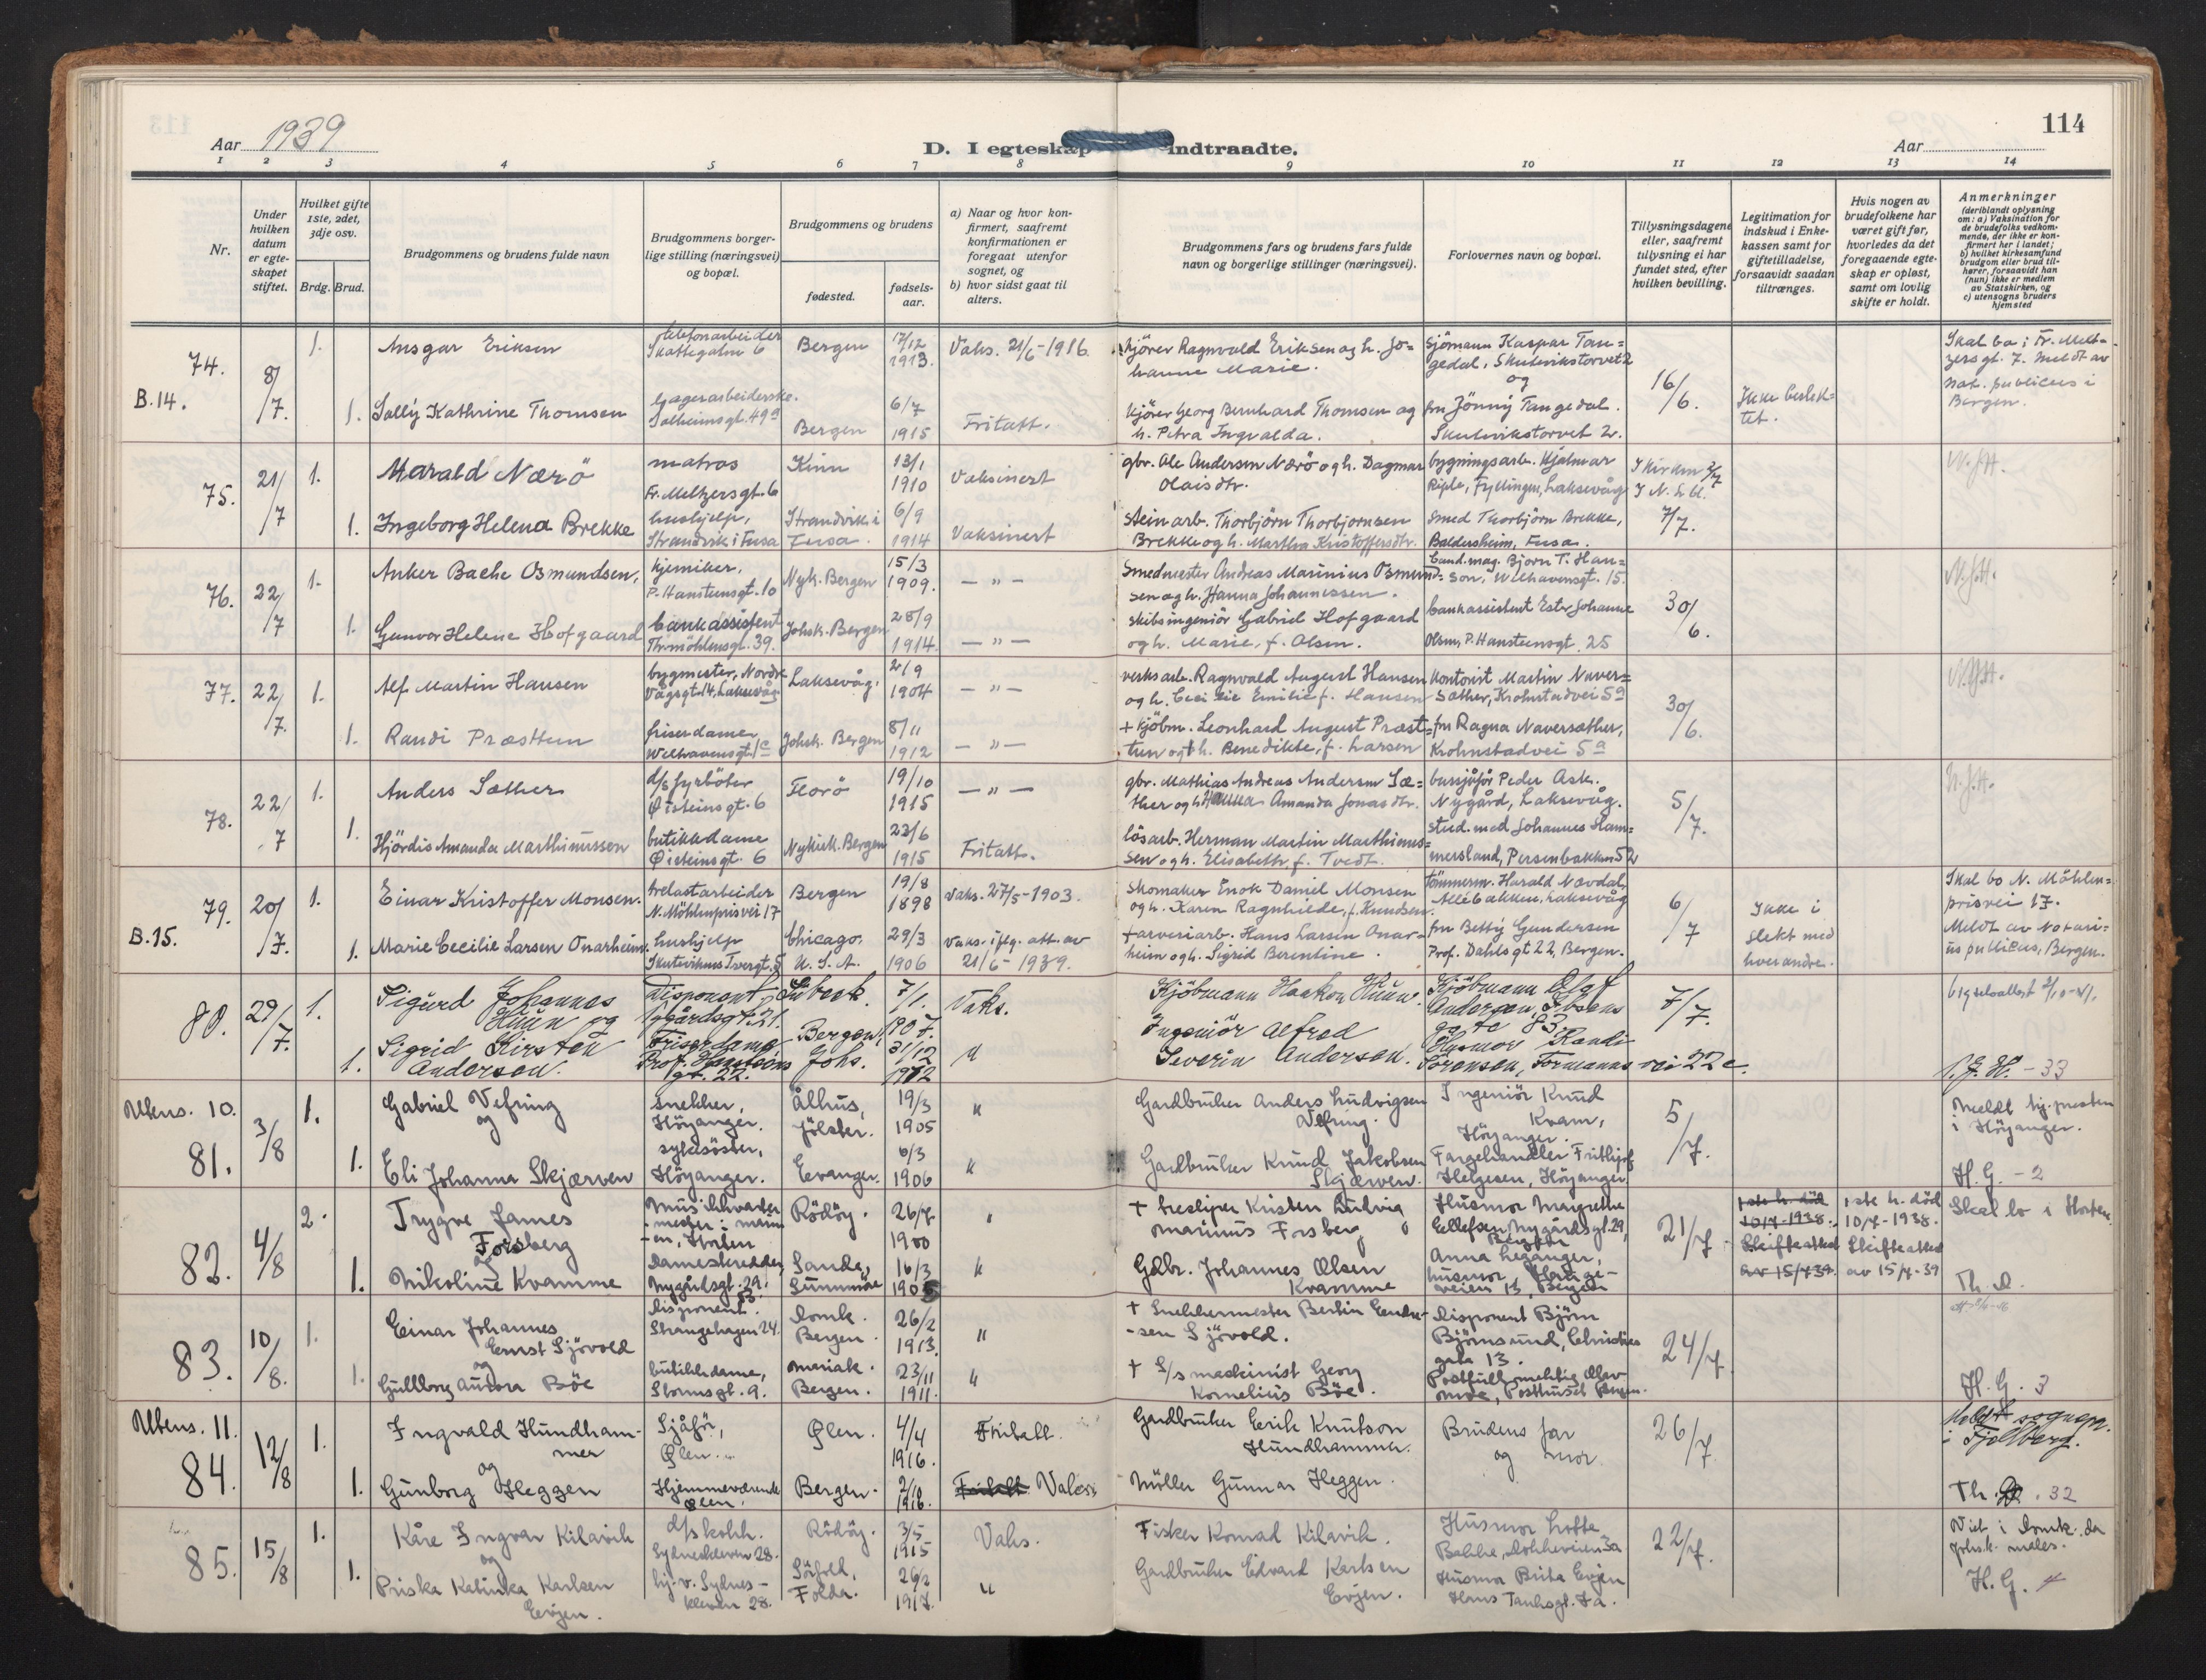 114
Aar 1939
D. I egteskap indtraadte.
Aar
1 2 3 4 5 6 7 8 9 10 11 12 13 14
Nr.
Under hvilken datum er egteskapet stiftet.
Hvilket gifte 1ste, 2det, 3dje osv.
Brdg. Brud.
Brudgommens og brudens fulde navn
Brudgommens borgerlige stilling (næringsvei) og bopæl.
Brudgommens og brudens
fødested.
fødselsaar.
a) Naar og hvor konfirmert, saafremt konfirmationen er foregaat utenfor sognet, og
b) hvor sidst gaat til alters.
Brudgommens fars og brudens fars fulde navn og borgerlige stillinger (næringsvei).
Forlovernes navn og bopæl.
Tillysningsdagene eller, saafremt tillysning ei har fundet sted, efter hvilken bevilling.
Legitimation for indskud i Enkekassen samt for giftetilladelse, forsaavidt saadan tiltrænges.
Hvis nogen av brudefolkene har været gift før, hvorledes da det foregaaende egteskap er opløst, samt om lovlig skifte er holdt.
Anmerkninger
(deriblandt oplysning om: a) Vaksination for de brudefolks vedkommende, der ikke er konfirmert her i landet; b) hvilket kirkesamfund brudgom eller brud tilhører, forsaavidt han (hun) ikke er medlem av Statskirken, og c) utensogns bruders hjemsted
74. B.14. 8/7. 1. Ansgar Eriksen telefonarbeider Skottegaten 6 Bergen 17/12 1913. Vaks. 21/6-1916. kjörer Ragnvald Eriksen og h. Johanne Marie. Sjömann Kaspar Tangedal, Skutevikstorvet 2 og 16/6. Ikke beslektet. Skal bo i Fr. Meltzersgt. 7. Meldt av not. publicus i Bergen.
1. Solly Kathrine Thomsen lagerarbeiderske. Solheimsgt. 49a Bergen 6/7 1915 Fritatt. kjörer Georg Bernhard Thomsen og h. Petra Ingvalda. fru Jönny Tangedal. Skutevikstorvet 2.
75. 21/7 1. Harald Nærö matros Fr. Meltzersgt. 6 Kinn 13/1 1910 Vaksinert gbr. Ole Andersen Nærö og h. Dagmar Olaisdtr. bygningsarb. Hjalmar Riple, Fyllingen, Laksevåg I kirken 2/7 I N. L. bl. 7/7. N.J.H.
1. Ingeborg Helena Brekke hushjelp, Strandvik i Fusa Strandvik i Fusa. 6/9 1914 Vaksinert Steinarb. Thorbjörn Thorbjornsen Brekke og h. Martha Kristoffersdtr. Smed Thorbjörn Brekke, Baldersheim, Fusa.
76. 22/7 1. Anker Bache Osmundsen, kjemiker. P. Hansteensgt. 10 Nyk. Bergen 15/3 1909. — " — Smedmester Andreas Marinius Osmundsen og h. Hanna Johannessen. Cand. mag. Bjorn T. Hanson, Welhavensgt. 15. 30/6. N.J.H.
1. Gunvor Helene Hofgaard bankassistent Thormöhlensgt. 39. Johsk. Bergen 28/9 1914. — " — Skibsingeniör Gabriel Hofgaard og h. Marie, f. Olsen. bankassistent Ester Johanne Olsen, P. Hansteensgt. 25
77. 22/7. 1. Alf Martin Hansen bygmester, Nordre Vågsgt. 14, Laksevåg Laksevåg. 2/9 1904 — " — verksarb. Ragnvald August Hansen og h. Cecilie Emilie f. Hansen Kontorist Martin Naversæther, Krohnstadvei 5a 30/6. N.J.H.
1. Randi Præsttun friserdame, Welhavensgt. 1c Johsk. Bergen 8/11 1912 — " — + kjöbm. Leonhard August Præsttun og + h. Benedikte, f. Larsen fru Ragna Naversæther, Krohnstadvei 5a
78. 22/7 1. Anders Sæther d/s fyrböter Øisteinsgt. 6 Florö 19/10 1915 — " — gbr. Mathias Andreas Andersen Sæther og h. Hanna Amanda Jonasdtr. bussjåför Peder Ask. Nygård, Laksevåg. 5/7. N.J.H.
1. Hjördis Amanda Marthinussen butikkdame Øisteinsgt. 6 Nykirk. Bergen 23/6 1915 Fritatt. lösarb. Herman Martin Marthinussen og h. Elisabeth, f. Tvedt. stud. med Johannes Hammersland, Persenbakken 52
79. B.15. 20/7. 1. Einar Kristoffer Monsen. trelastarbeider N. Möhlenprisvei 17 Bergen 19/8 1898 Vaks. 27/5-1903. Skomaker Enok Daniel Monsen og h. Karen Ragnhilde, f. Knudsen. Tömmerm. Harald Nævdal, Allébakken, Laksevåg 6/7 Ikke i slekt med hverandre. Skal bo N. Möhlenprisvei 17. Meldt av Notarius publicus, Bergen.
1. Marie Cecilie Larsen Onarheim. hushjelp Skutevikens Tvergt. 5 Chicago. U.S.A. 29/3 1906 Vaks. iflg. att. av 21/6-1939. + arveriarb. Hans Larsen Onarheim og h. Sigrid Berentine. fru Betty Gundersen Prof. Dahlsgt 22, Bergen.
80. 29/7. 1. Sigurd Johannes Huun og Disponent, Nygårdsgt. 21. Lübeck. 7/1. 1907. Vaks. Kjöbmann Haakon Huun. Kjöbmann Olaf Andersen, Ibsens gate 83 7/7.
1. Sigrid Kirsten Andersen. Friserdame Prof. Hansteens gt. 22. Bergen, Johs. 31/12 1912 " Ingeniör Alfred Severin Andersen. Husmor Randi Sörensen, Formanns vei 22c. N.J.H. - 33
Utens. 10. 81. 3/8 1. Gabriel Vefring og snekker, Höyanger. Ålhus, Jölster. 19/3 1905 " Gardbruker Anders Ludvigsen Vefring. Ingeniör Knud Kvam, Höyanger. 5/7. Meldt til presten i Höyanger.
1. Eli Johanna Skjærven sykesöster, Höyanger. Evanger. 6/3 1906 " Gardbruker Knud Jakobsen Skjærven. Fargehandler Frithjof Helgesen, Höyanger H.G. - 2
82. 4/8 2. Trygve James Forsberg og Horten Rödöy. 26/7 1900 " + tresliper Kristen Ludvig Marinus Forsberg Husmor Margrethe Ellefsen, Nygårdsgt. 29, Bergen 21/7 1ste h. död 10/7-1938. Skifteattest av 15/7-39. 1ste h. död 10/7-1938. Skifteattest av 15/7-39 Skal bo i Horten.
1. Nikoline Kvamme Dameskredder, Nygårdsgt. 29. Sande, Sunnmöre 16/3 1905 " Gdbr. Johannes Olsen Kvamme Anna Leganger, husmor, Bergen Th. D.
83. 10/8. 1. Einar Johannes Ernst Sjövold og Disponent. Strangehagen 24. Domk. Bergen. 26/2 1913. " + Snekkermester Bertin Endresen Sjövold. Disponent Björn Björnsund, Christies gate 13. 24/7
1. Gullborg Aurora Böe butikkdame, Stormsgt. 9. Mariak. Bergen. 23/11 1911. " + S/s maskinist Georg Kornelius Böe. Postfullmektig Olav Moe, Posthuset Bergen. H.G. 3
Utens. 11. 84. 12/8 1. Ingvald Hundhammer og Sjåför, Ølen. Ølen. 4/4 1916. Fritatt. Gardbruker Erik Knutson Hundhammer. Brudens far og mor. 26/7. Meldt sognepr. i Fjelberg.
1. Gunborg Heggen Hjemmeværende Ølen. Bergen. 2/10 1916. Fritatt. Møller Gunnar Heggen. Th. D. 32
85. 15/8 1. Kåre Ingvar Kilavik og d/s kokk. Sydneskleven 28. Rödöy. 3/5 1915 Vaks. Fisker Konrad Kilavik. Husmor Lotte Bakke, 22/7. Viet i Domk. da Johs.k. males.
1. Priska Katinka Karlsen Evjen. hj. v. Sydneskleven 28. Sörfold, Folda. 26/2 1917. " Gardbruker Edvard Karlsen Evjen. Husmor Brita Evjen Hans Tanksgt. H.G. 4